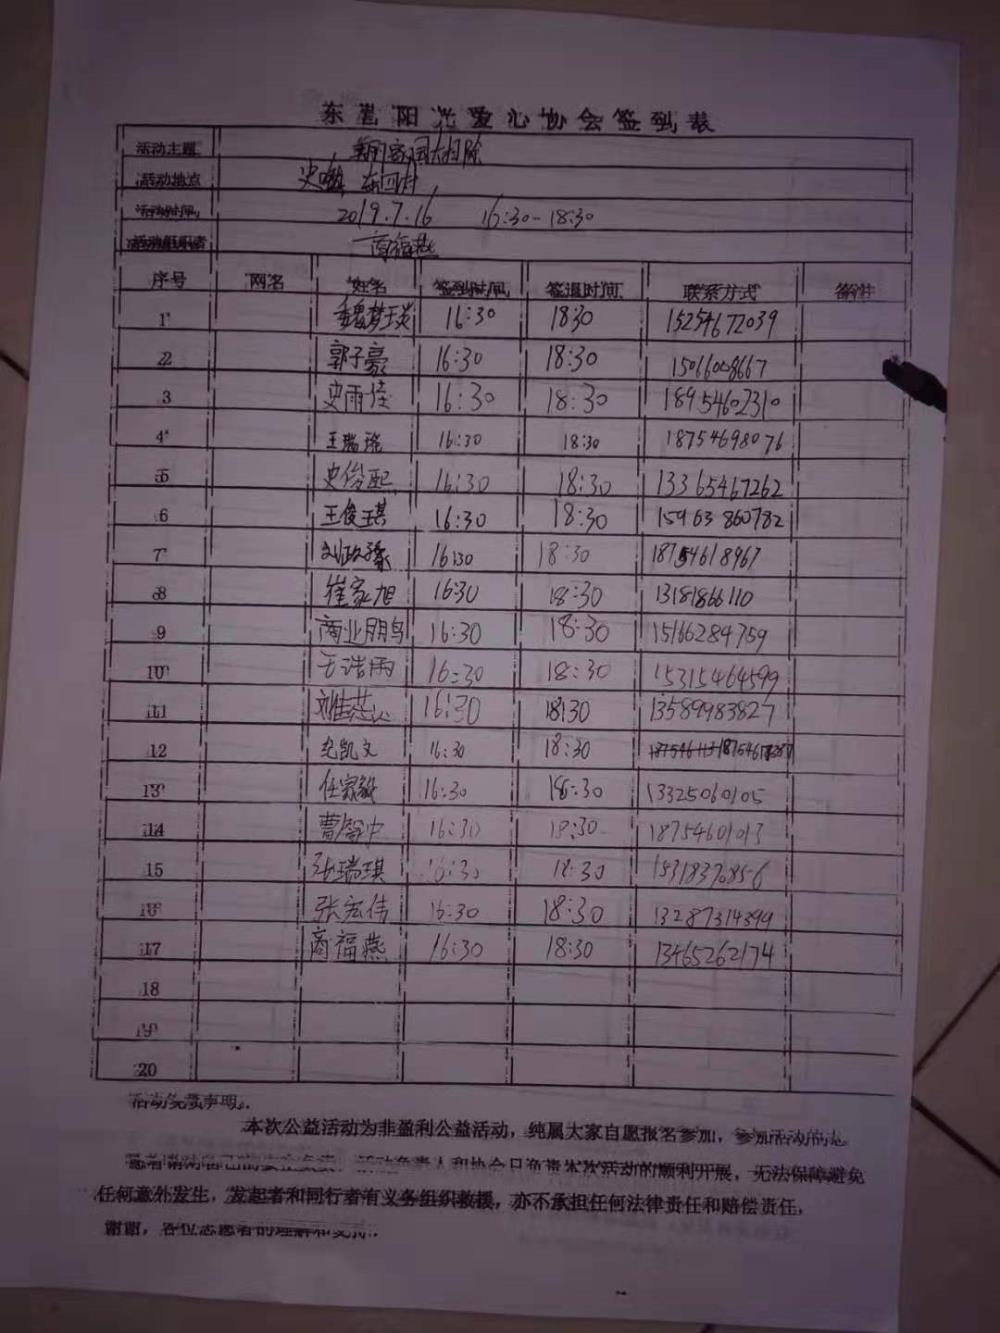 东营阳光爱心协会签到表
活动主题 美丽家园大扫除
活动地点 史 东四村
活动时间 2019.7.16 16:30-18:30
活动组织者 商福燕
序号 网名 姓名 签到时间 签退时间 联系方式 备注
1 魏梦琰 16:30 1830 15254672039
2 郭子豪 16:30 18:30 15066008667
3 史雨佳 16:30 18:30 18954602310
4 王瑞瑶 16:30 18:30 18754698076
5 史俊熙 16:30 18:30 13365467262
6 王俊琪 16:30 18:30 15963860782
7 刘政豫 16:30 18:30 18754618967
8 崔家旭 16:30 18:30 13181866110
9 商业朋鸟 16:30 18:30 15166284759
10 王浩雨 16:30 18:30 15315464599
11 16:30 18:30 13589983827
12 纪凯文 16:30 18:30
13 任家毅 16:30 18:30 13325060105
14 曹 中 16:30 18:30 18754601013
15 张瑞琪 16:30 18:30 15318370856
16 张宏伟 16:30 18:30 13287314399
17 商福燕 16:30 18:30 13465262174
18
19
20
活动免责声明：
本次公益活动为非盈利公益活动，纯属大家自愿报名参加，参加活动的志
愿者请对自己的安全负责，活动负责人和协会只负责本次活动的顺利开展，无法保障避免
任何意外发生，发起者和同行者有义务组织救援，亦不承担任何法律责任和赔偿责任，
谢谢，各位志愿者的理解和支持。